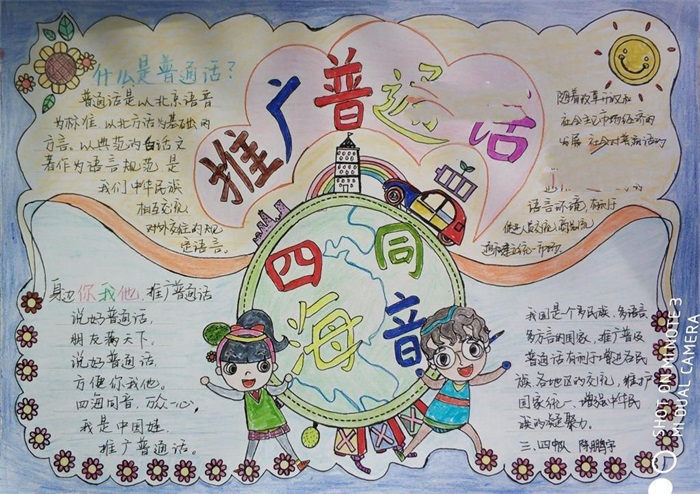 什么是普通话?
普通话是以北京语音
为标准,以北方话为基础的
方言,以典范的白话文
著作为语言规范,是
我们中华民族
相互交流
对外交往的规
定语言。
推广普通话
四海同音
随着改革开放和
社会主义市场经济的
发展,社会对普及的
语言环境,有利于
促进人员交流,商品流
通和建立统一市场。
身边你我他,推广普通话
说好普通话,
朋友满天下,
说好普通话,
方便你我他。
四海同音,万众一心,
我是中国娃
推广普通话。
我国是个多民族、多语言、
多方言的国家,推广普及
普通话有利于增进各民
族各地区的交流,维护
国家统一、增强中华民
族的凝聚力。
三、四中队 陈鹏宇
SHOT ON MI NOTE 3
MI DUAL CAMERA